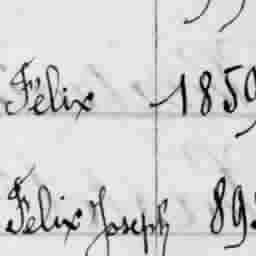 Félix 1859
Félix Joseph 89